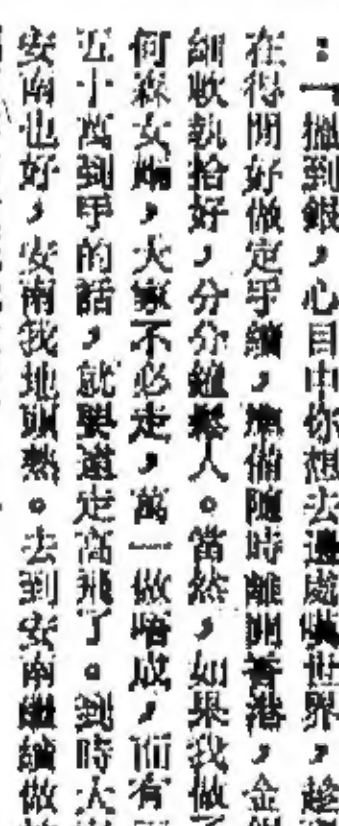 ：一搵到銀，心目中你想去邊處嘆世界，趁
在得閒好做定手續，準備隨時離開香港，金
細收執拾好，分分鐘鬆人。當然，如果我做
何森女婿，大家不必走，萬一做唔成，而有
五十萬到手的話，就要遠走高飛了。到時大
安南也好，安南我地頭熟。去到安南繼續做